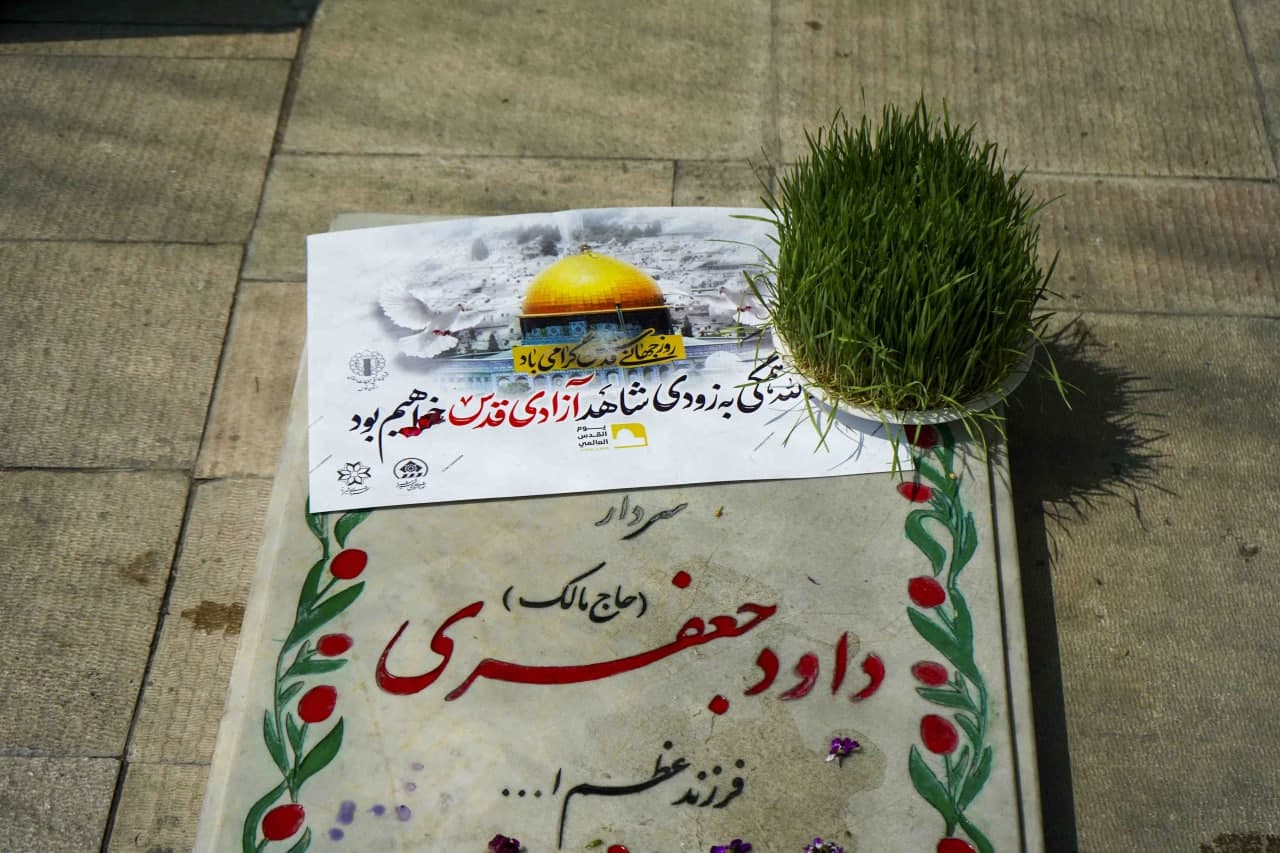 روز جهانی قدس گرامی باد
لله همگی به زودی شاهد آزادی قدس خواهیم بود
يوم
القدس
العالمي
سردار
(حاج مالک)
داود جعفری
فرزند عظم ا...